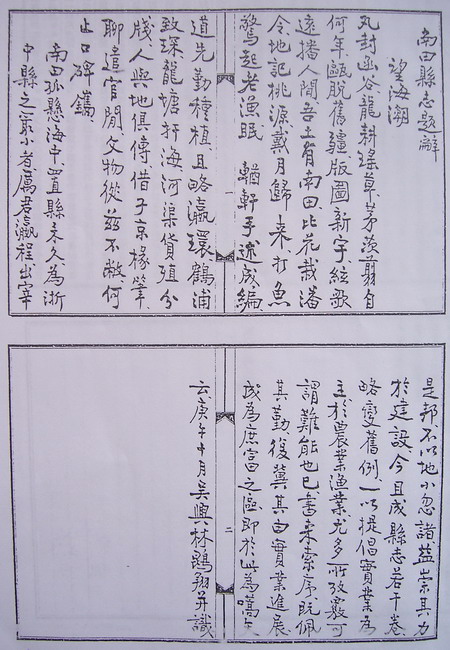 南田縣志題辭
望海潮
丸封函谷龍耕瑤草茅茨翦自
何年甌脫舊疆版圖新宇絃歌
遠播人間吾土有南田比花栽潘
令地記桃源戴月歸來打魚
驚起老漁眠 輶軒手述成編
一
道先勤種植且略瀛環鶴浦
致琛龍塘捍海河渠貨殖分
牋人與地俱傳借子京椽筆
聊遣官閒文物從茲不敝何
止口碑鐫
南田孤縣海中置縣未久為浙
中縣之冣小者厲君瀛程出宰
是邦不以地小忽諸益崇其力
於建設今且成縣志若干卷
略變舊例一以提倡實業為
主於農業漁業尤多所攷覈可
謂難能也已書來索序既佩
其勤復冀其由實業進展
成為庶富之區即於此為嚆矢
二
云庚午十月吳興林鵾翔并識